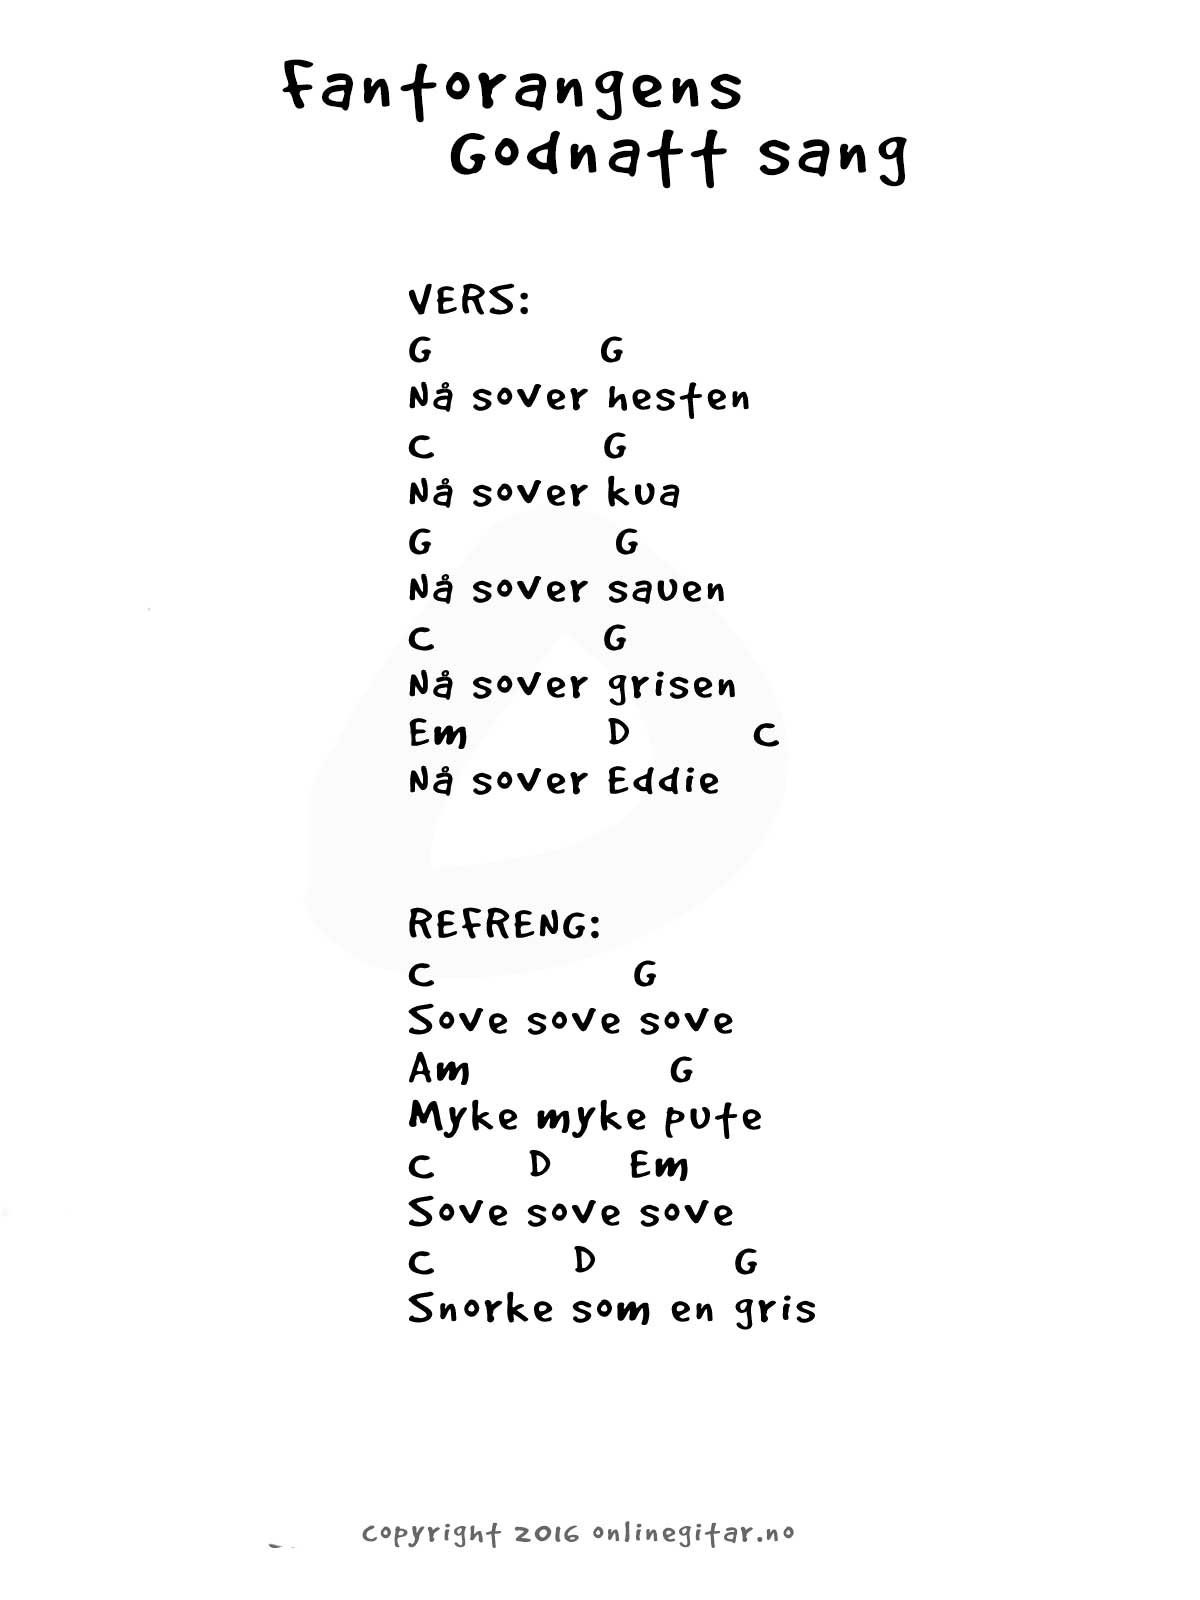 Fantorangens
Godnatt sang
VERS:
G G
Nå sover hesten
C G
Nå sover kua
G G
Nå sover sauen
C G
Nå sover grisen
Em D C
Nå sover Eddie
REFRENG:
C G
Sove sove sove
Am G
Myke myke pute
C D Em
Sove sove sove
C D G
Snorke som en gris
copyright 2016 onlinegitar.no